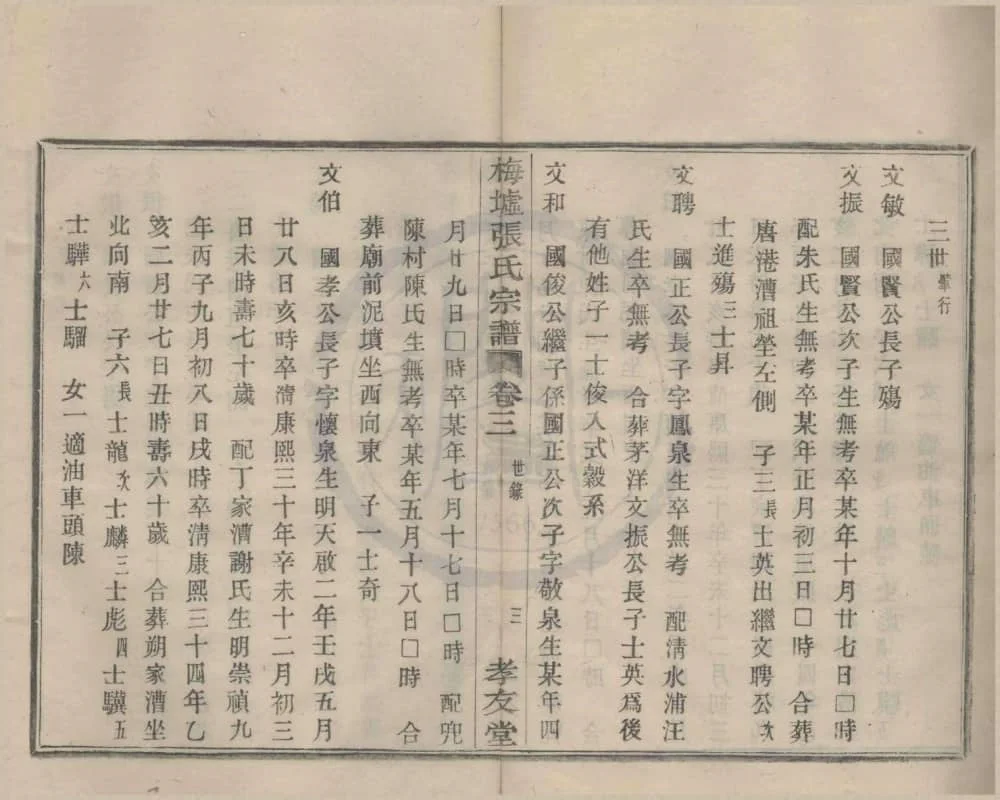 三世肇行
文敏　國賢公長子殤
文振　國賢公次子生無考卒某年十月廿七日□時
配朱氏生無考卒某年正月初三日□時　合葬
唐港漕祖塋左側　子三長士英出繼文聘公次
士進殤三士昇
文聘　國正公長子字鳳泉生卒無考　配清水浦汪
氏生卒無考　合葬茅洋文振公長子士英爲後
有他姓子一士俊入式穀系
文和　國俊公繼子係國正公次子字敬泉生某年四
梅墟張氏宗譜　卷三　世錄　三　孝友堂
月廿九日□時卒某年七月十七日□時　配兜
陳村陳氏生無考卒某年五月十八日□時　合
葬廟前泥墳坐西向東　子一士奇
文伯　國孝公長子字懷泉生明天啟二年壬戌五月
廿八日亥時卒清康熙三十年辛未十二月初三
日未時壽七十歲　配丁家漕謝氏生明崇禎九
年丙子九月初八日戌時卒清康熙三十四年乙
亥二月廿七日丑時壽六十歲　合葬朔家漕坐
北向南　子六長士龍次士麟三士彪四士驥五
士驊六士騮　女一適油車頭陳